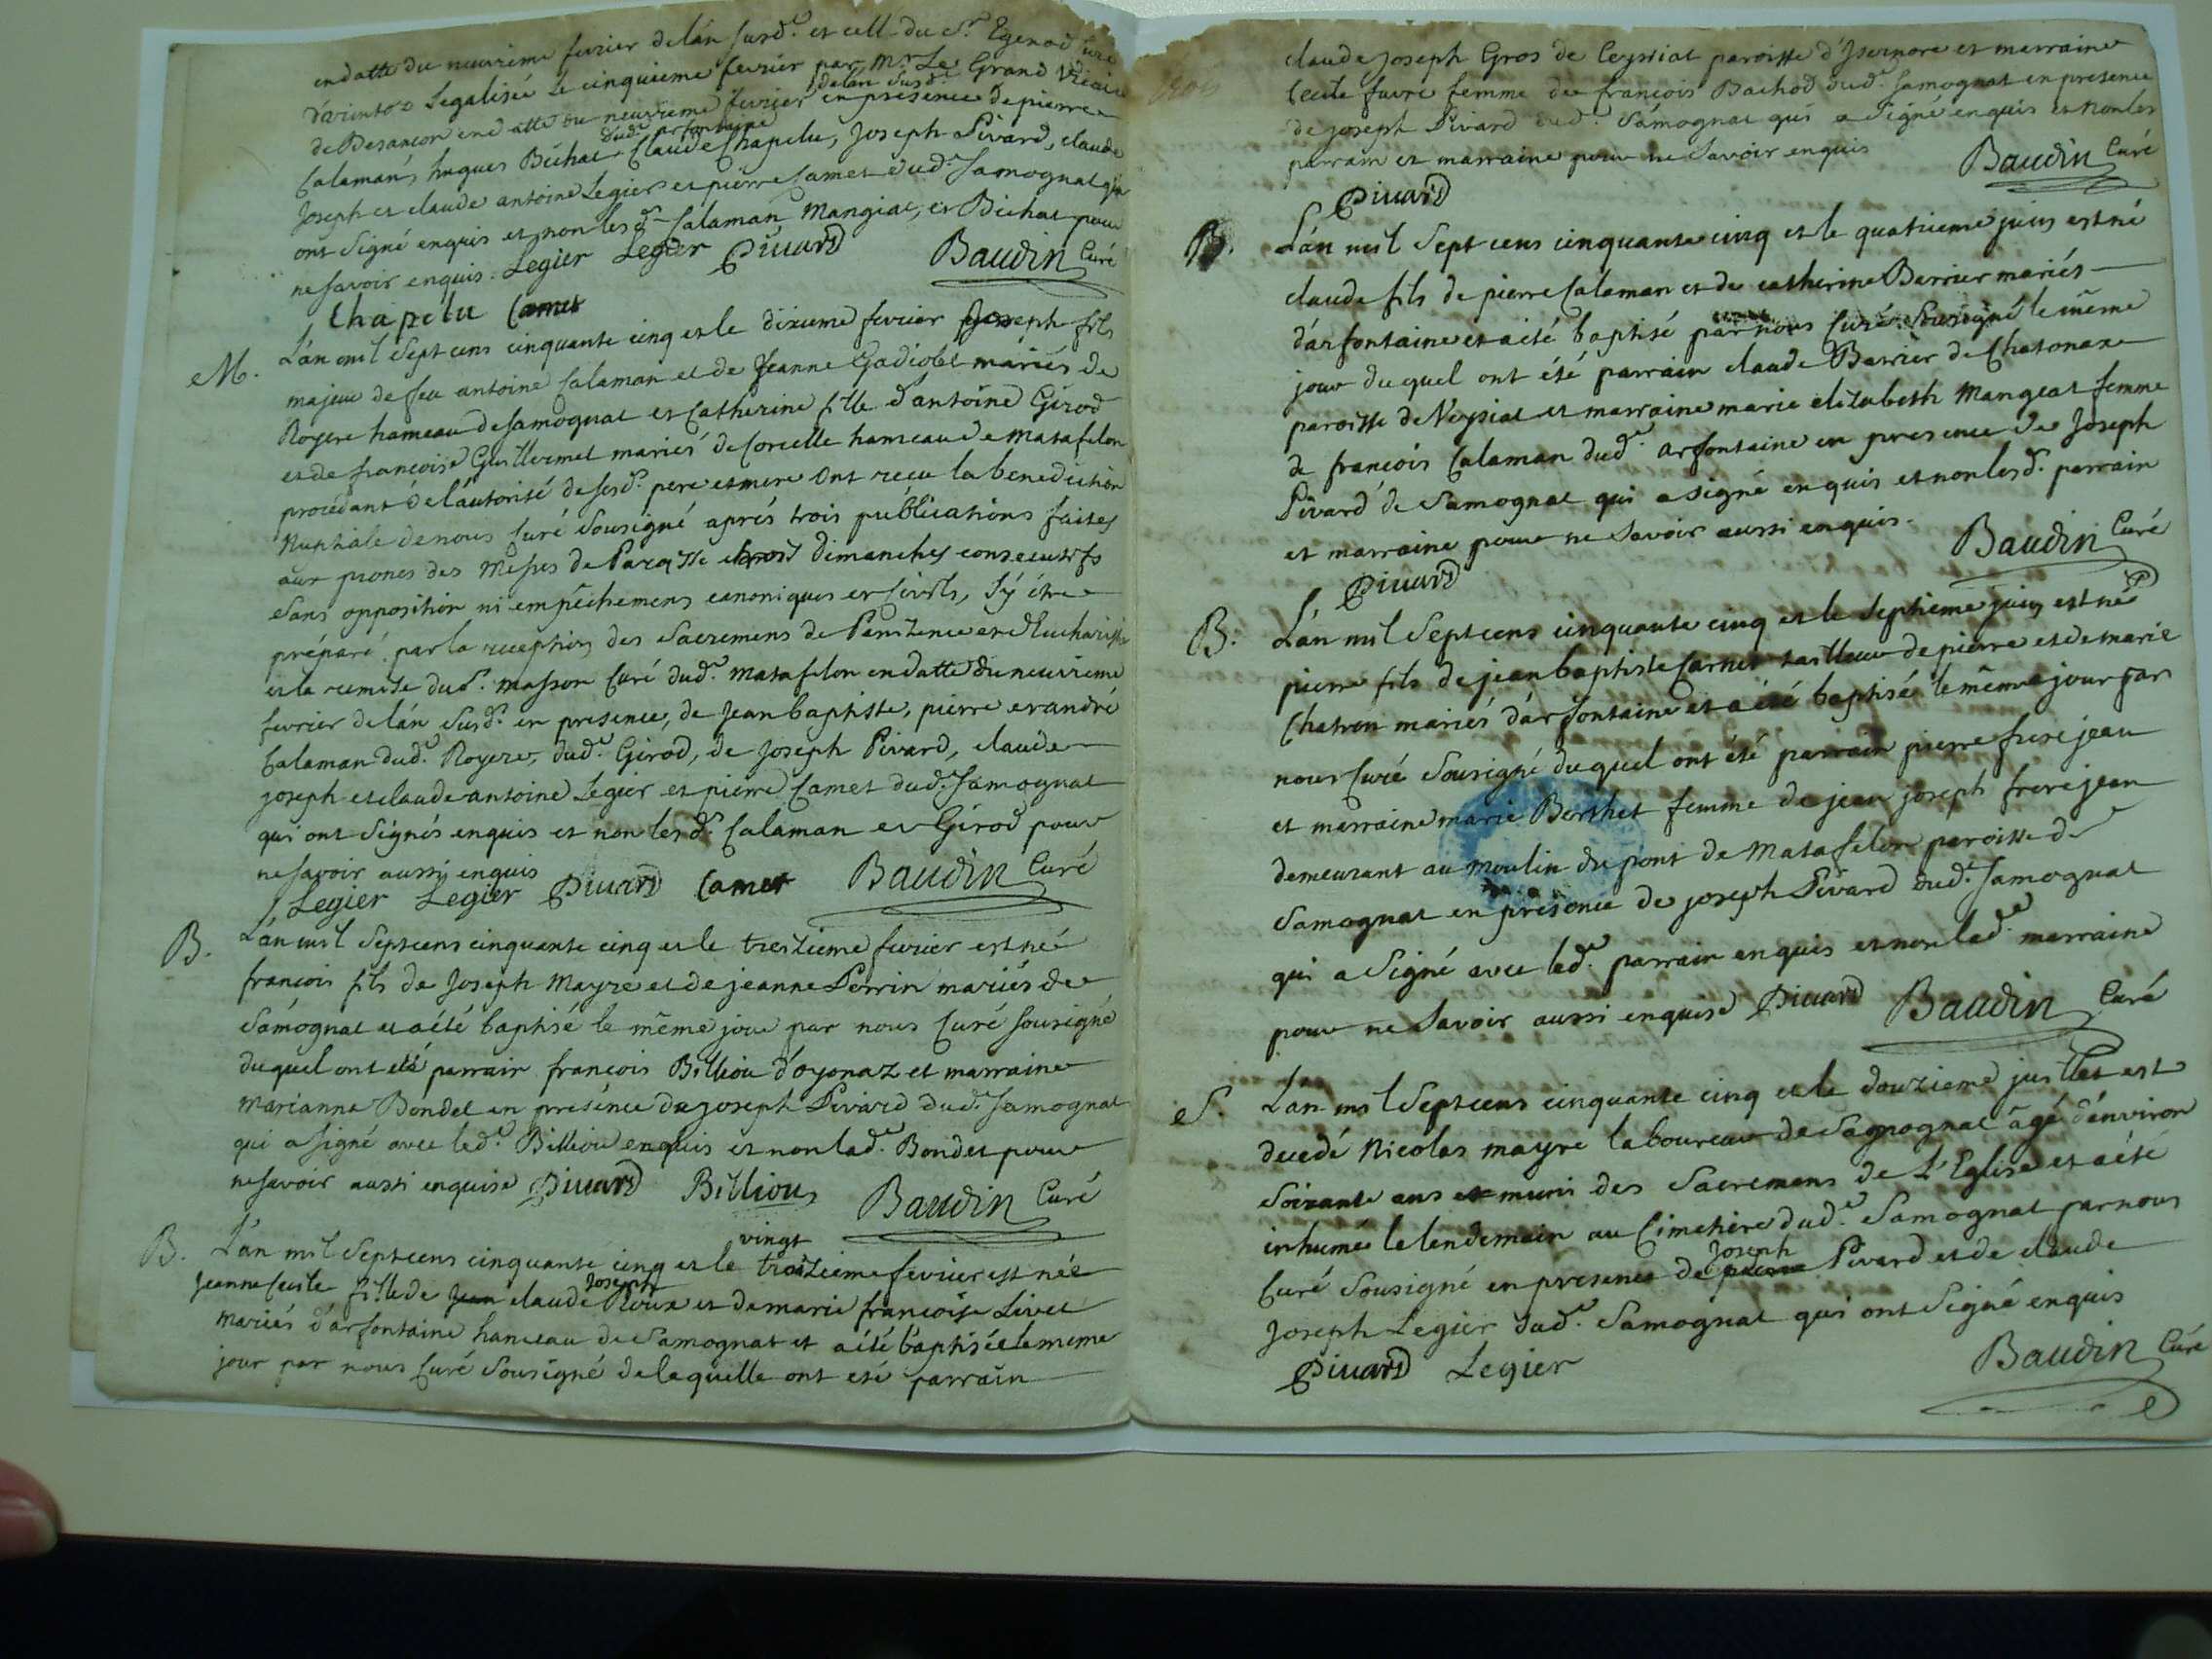 endatte du neuvieme fevrier delán susd.e et cell du Sr. Egenod curé
d'arintod Legalisée Le cinquieme fevrier par Mr Le Grand Vicaire
de Besançon end atte du neuvieme fevrier delán susd.e en présence de pierre
Calaman, hugues Bichat dud.e arfontaine Claude Chapelu, Joseph Pivard, claude
Joseph et claude antoine Legier et pierre Camet dud.e Samognat qui
ont signé enquis et non lesd. Calaman Mangiat, et Bichat pour
ne savoir enquis. Legier Legier Pivard Baudin Curé
Chapelu Camet
M. L'án mil sept cens cinquante cinq et le dixieme fevrier Joseph fils
majeur de feu antoine Calaman et de Jeanne Gadiolet mariés de
Royere hameau de Samognat et Catherine fille d'antoine Girod
et de françoise Guillermet mariés de Corcelle hameau de matafelon
procedant de l'autorité de sesd. pere et mere ont recu la benediction
Nuptiale de nous Curé Sousigné aprés trois publications faites
aux prones des Messes de Paroisse trois dimanches consecutifs
sans opposition ni empêchemens canoniques et civils, s'y être
préparé par la reception des Sacremens de Penitence et d'Eucharistie
et la remise du S. masson Curé dud.e matafelon endatte du neuvieme
fevrier delán susd.e en presence, de Jean baptiste, pierre et andré
Calaman dud.e Royere, dud.e Girod, de Joseph Pivard, claude
joseph et claude antoine Legier et pierre Camet dud.e Samognat
qui ont signés enquis et non lesd. Calaman et Girod pour
ne savoir aussi enquis
Legier Legier Pivard Camet Baudin Curé
B. L'án mil septcens cinquante cinq et le treisieme fevrier est né
françois fils de Joseph Mayre et de jeanne Perrin mariés de
Samognat et a été baptisé le même jour par nous Curé sousigné
duquel ont été parrain françois Billiou d'oyonaz et marraine
marianne Bondet en présence de joseph Pivard dud. Samognat
qui a signé avec led.e Billiou enquis et non lad.e Bondet pour
ne savoir aussi enquise Pivard Billiou Baudin Curé
B. L'án mil septcens cinquante cinq et le vingt troisieme fevrier est née
Jeanne Cecile fille de Jean claude Joseph Roux et de marie françoise Livet
mariés d'arfontaine hameau de Samognat et a été baptisée le meme
jour par nous Curé Sousigné de laquelle ont été parrain
claude Joseph Gros de Ceyssiat paroisse d'Isernore et marraine
Cecile favre femme de françois Bachod dud.e Samognat en presence
de joseph Pivard dud.e Samognat qui a signé enquis et non les
parrain et marraine pour ne savoir enquis
Pivard Baudin Curé
B. L'án mil sept cens cinquante cinq et le quatrieme juin est né
claude fils de pierre Calaman et de catherine Barrier mariés
d'arfontaine et a été baptisé par nous Curé Sousigné le même
jour duquel ont été parrain claude Barrier de Chatonax
paroisse de Veysiat et marraine marie elizabeth Mangeat femme
de françois Calaman dud.e arfontaine en presence de Joseph
Pivard de Samognat qui a signé enquis et non lesd. parrain
et marraine pour ne savoir aussi enquis.
Pivard Baudin Curé
B. L'án mil septcens cinquante cinq et le septieme juin est né
pierre fils de jean baptiste Carnet tailleur de pierre et de marie
Chatron mariés d'arfontaine et a été baptisé le même jour par
nous Curé Sousigné duquel ont été parrain pierre frere jean
et marraine marie Berthet femme de jean joseph frere jean
demeurant au moulin du pont de Matafelon paroisse de
Samognat en présence de joseph Pivard dud.e Samognat
qui a signé avec led.e parrain enquis et non lad.e marraine
pour ne savoir aussi enquise Pivard Baudin Curé
S. L'án mil septcens cinquante cinq et le douzieme juillet est
decedé Nicolas mayre laboureur de Samognat âgé d'environ
soixante ans et muni des Sacremens de L'Eglise et a été
inhumé le lendemain au Cimetiere dud.e Samognat par nous
Curé Sousigné en presence de Joseph pierre Pivard et de claude
Joseph Legier dud.e Samognat qui ont signé enquis
Pivard Legier Baudin Curé